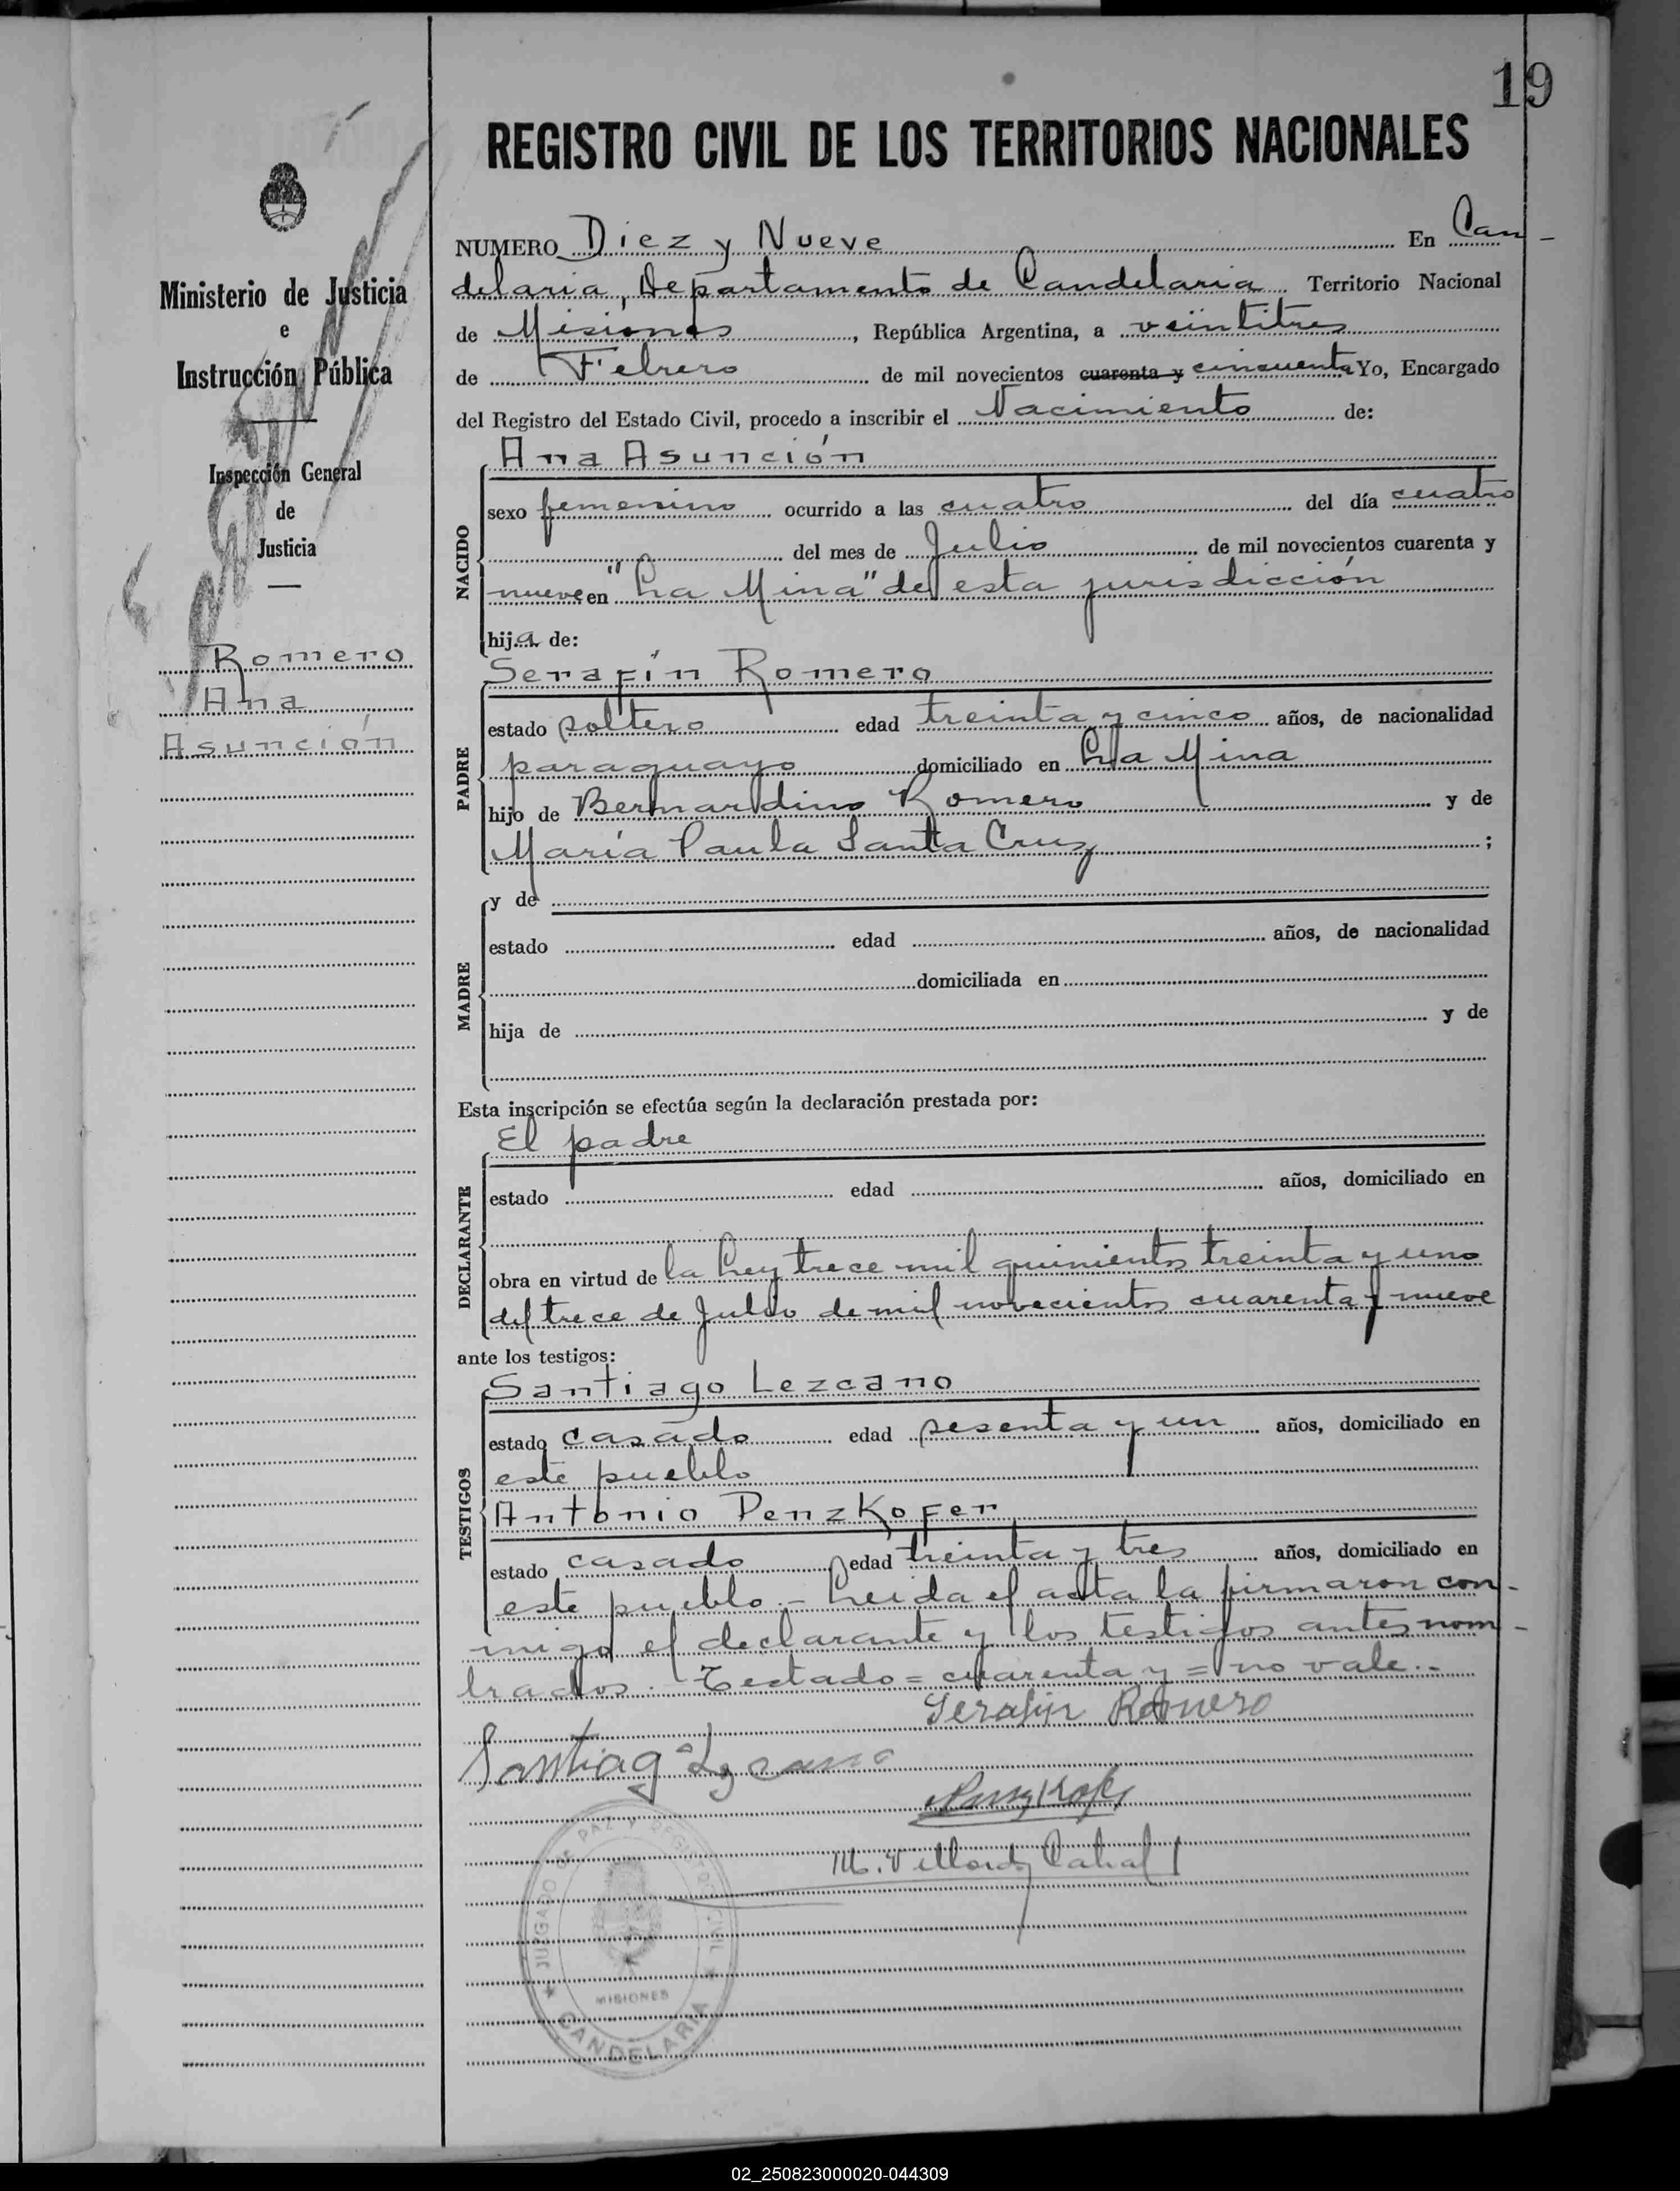 19
REGISTRO CIVIL DE LOS TERRITORIOS NACIONALES
Ministerio de Justicia
e
Instrucción Pública
Inspección General
de
Justicia
Romero
Ana
Asunción
NUMERO Diez y Nueve En Can-
delaria, Departamento de Candelaria Territorio Nacional
de Misiones, República Argentina, a veintitres
de Febrero de mil novecientos cuarenta y cincuenta Yo, Encargado
del Registro del Estado Civil, procedo a inscribir el Nacimiento de:
NACIDO
Ana Asunción
sexo femenino ocurrido a las cuatro del día cuatro
del mes de Julio de mil novecientos cuarenta y
nueve en "La Mina" de esta jurisdicción
hija de:
PADRE
Serafín Romero
estado soltero edad treinta y cinco años, de nacionalidad
paraguayo domiciliado en La Mina
hijo de Bernardino Romero y de
María Paula Santa Cruz ;
MADRE
y de
estado edad años, de nacionalidad
domiciliada en
hija de y de
Esta inscripción se efectúa según la declaración prestada por:
DECLARANTE
El padre
estado edad años, domiciliado en
obra en virtud de la Ley trece mil quinientos treinta y uno
del trece de Julio de mil novecientos cuarenta y nueve
ante los testigos:
TESTIGOS
Santiago Lezcano
estado casado edad sesenta y un años, domiciliado en
este pueblo
Antonio Penzkofer
estado casado edad treinta y tres años, domiciliado en
este pueblo.- Leida el acta la firmaron con-
migo el declarante y los testigos antes nom-
brados. Testado = cuarenta y = no vale.-
Serafin Romero
Santiago Lezcano
Penzkofer
JUZGADO DE PAZ Y REGISTRO CIVIL
MISIONES
CANDELARIA
02_250823000020-044309